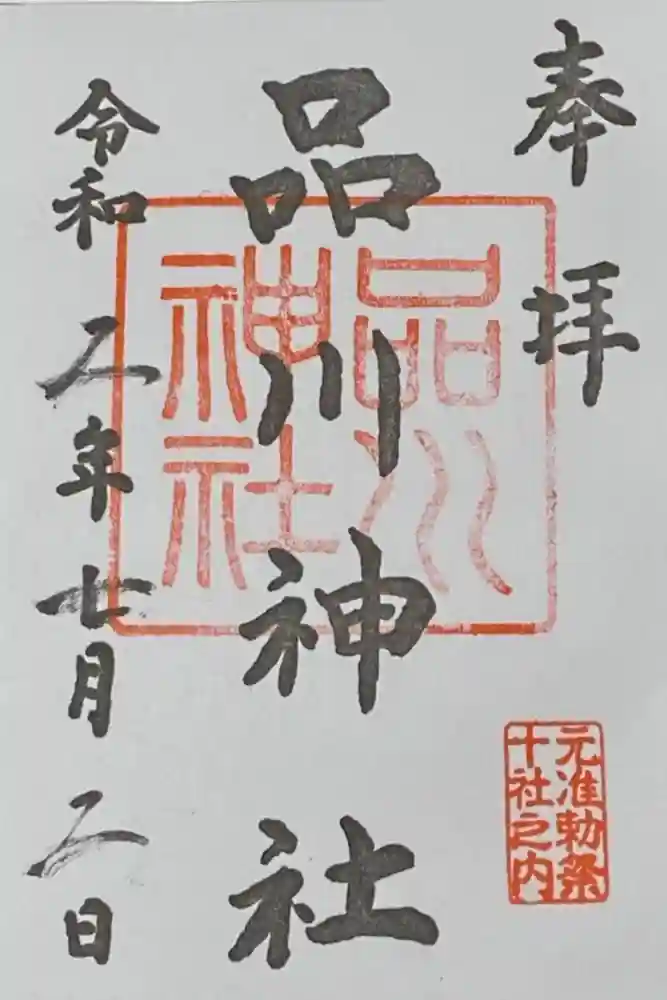 奉拝
品川神社
品川神社
令和二年七月二日
元准勅祭
十社之内